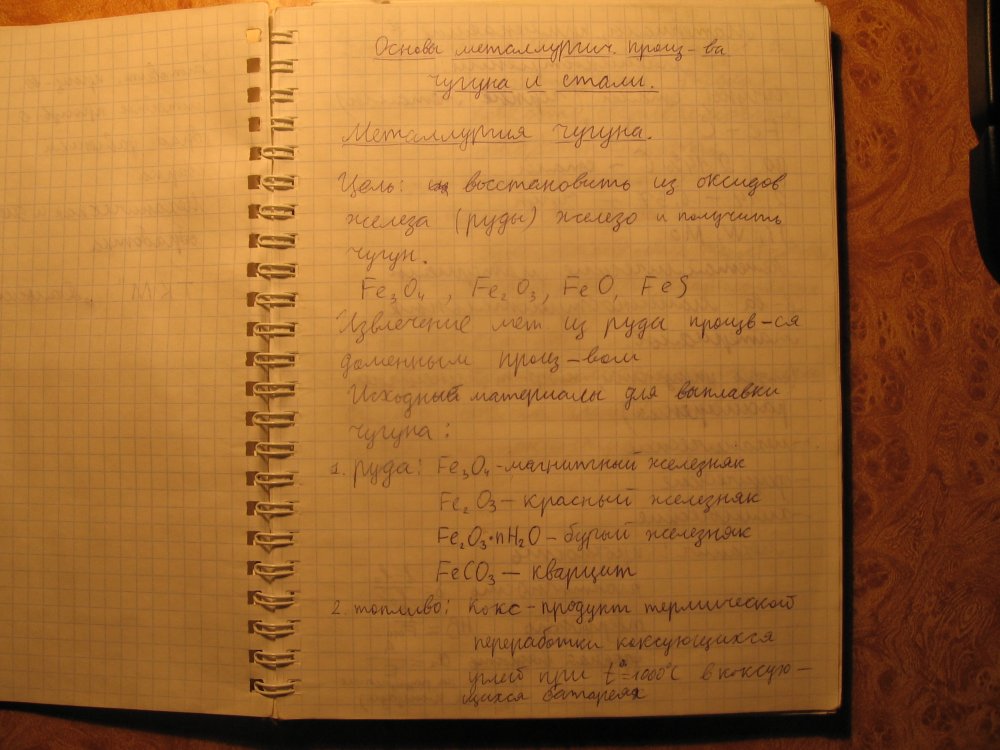 Основы металлургич. произ-ва
чугуна и стали.
Металлургия чугуна.
Цель: восстановить из оксидов
железа (руды) железо и получить
чугун.
Fe3O4, Fe2O3, FeO, FeS
Извлечение мет из руда произв-ся
доменным произ-вом
Исходный материалы для выплавки
чугуна:
1. руда: Fe3O4-магнитный железняк
Fe2O3 — красный железняк
Fe2O3·nH2O — бурый железняк
FeCO3 — кварцит
2. топливо: Кокс-продукт термической
переработки коксующихся
углей при t°=1000°С в коксую-
щихся батареях